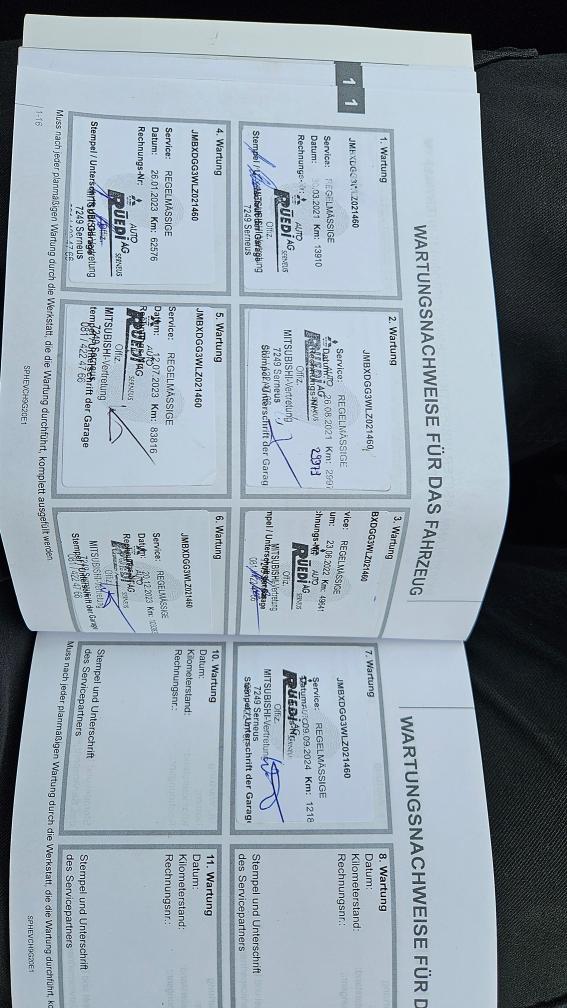 1
1
WARTUNGSNACHWEISE FÜR DAS FAHRZEUG
1. Wartung
JMBXDGG3WLZ021460
Service: REGELMÄSSIGE
Datum: .03.2021 Km: 13910
Rechnungs-Nr:
AUTO
RÜEDI AG
SERNEUS
Offiz.
7249 Serneus
2. Wartung
JMBXDGG3WLZ021460
Service: REGELMÄSSIGE
Datum: 26.08.2021 Km: 2997
29973
AUTO
RÜEDI AG
SERNEUS
Offiz.
MITSUBISHI-Vertretung
Stempel / Unterschrift der Garag
3. Wartung
BXDGG3WLZ021460
vice: REGELMÄSSIGE
um: 23.06.2022 Km: 49641
chnungs-Nr:
AUTO
RÜEDI AG
SERNEUS
Offiz.
MITSUBISHI-Vertretung
4. Wartung
JMBXDGG3WLZ021460
Service: REGELMÄSSIGE
Datum: 26.01.2022 Km: 62376
Rechnungs-Nr:
AUTO
RÜEDI AG
SERNEUS
Offiz.
Stempel / Unterschrift der Garage
7249 Serneus
5. Wartung
JMBXDGG3WLZ021460
Service: REGELMÄSSIGE
Datum: 12.07.2023 Km: 83816
AUTO
RÜEDI AG
SERNEUS
Offiz.
MITSUBISHI-Vertretung
7249 Serneus
081 / 422 47 66
tempel / Unterschrift der Garage
6. Wartung
JMBXDGG3WLZ021460
Service: REGELMÄSSIGE
Datum: 20.12.2023 Km:
AUTO
RÜEDI AG
SERNEUS
Offiz.
MITSUBISHI-Vertretung
7249 Serneus
081 / 422 47 66
Muss nach jeder planmäßigen Wartung durch die Werkstatt, die die Wartung durchführt, komplett ausgefüllt werden.
1-16
SPHEVCH9G20E1
WARTUNGSNACHWEISE FÜR D
7. Wartung
JMBXDGG3WLZ021460
Service: REGELMÄSSIGE
Datum: 09.09.2024 Km: 1218
AUTO
RÜEDI AG
SERNEUS
Offiz.
MITSUBISHI-Vertretung
7249 Serneus
Stempel / Unterschrift der Garage
8. Wartung
Datum:
Kilometerstand:
Rechnungsnr.:
Stempel und Unterschrift
des Servicepartners
10. Wartung
Datum:
Kilometerstand:
Rechnungsnr.:
Stempel und Unterschrift
des Servicepartners
11. Wartung
Datum:
Kilometerstand:
Rechnungsnr.:
Stempel und Unterschrift
des Servicepartners
Muss nach jeder planmäßigen Wartung durch die Werkstatt, die die Wartung durchführt, ko
SPHEVCH9G20E1